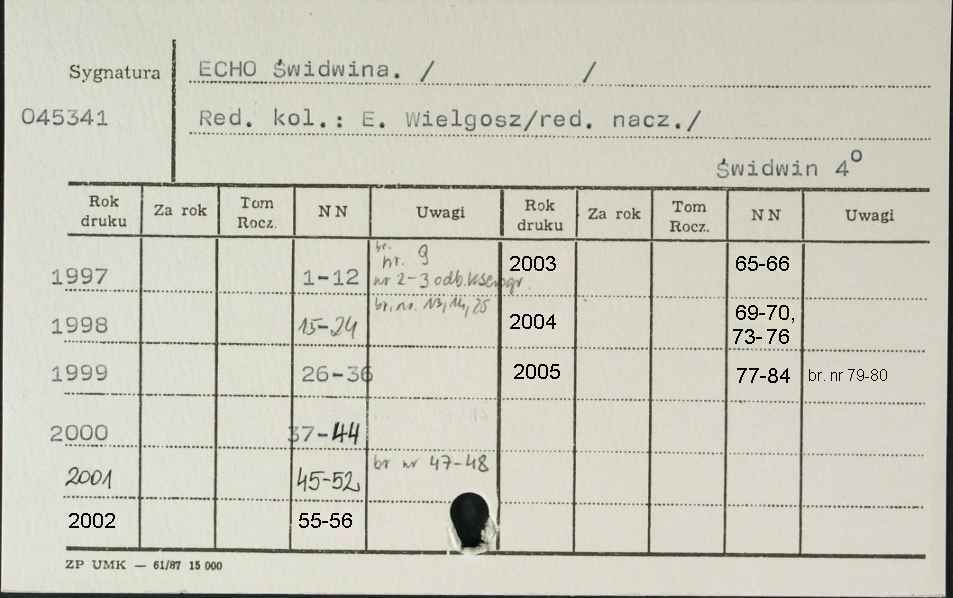 Sygnatura ECHO Świdwina. / /
045341 Red. kol.: E. Wielgosz/red. nacz./
Świdwin 4°
Rok druku Za rok Tom Rocz. NN Uwagi Rok druku Za rok Tom Rocz. NN Uwagi
1997 1-12 br. nr. 9 2003 65-66
nr 2-3 odb. kserogr.
1998 15-24 br. nr. 13, 14, 25 2004 69-70,
73-76
1999 26-36 2005 77-84 br. nr 79-80
2000 37-44
2001 45-52 br nr 47-48
2002 55-56
ZP UMK — 61/87 15 000